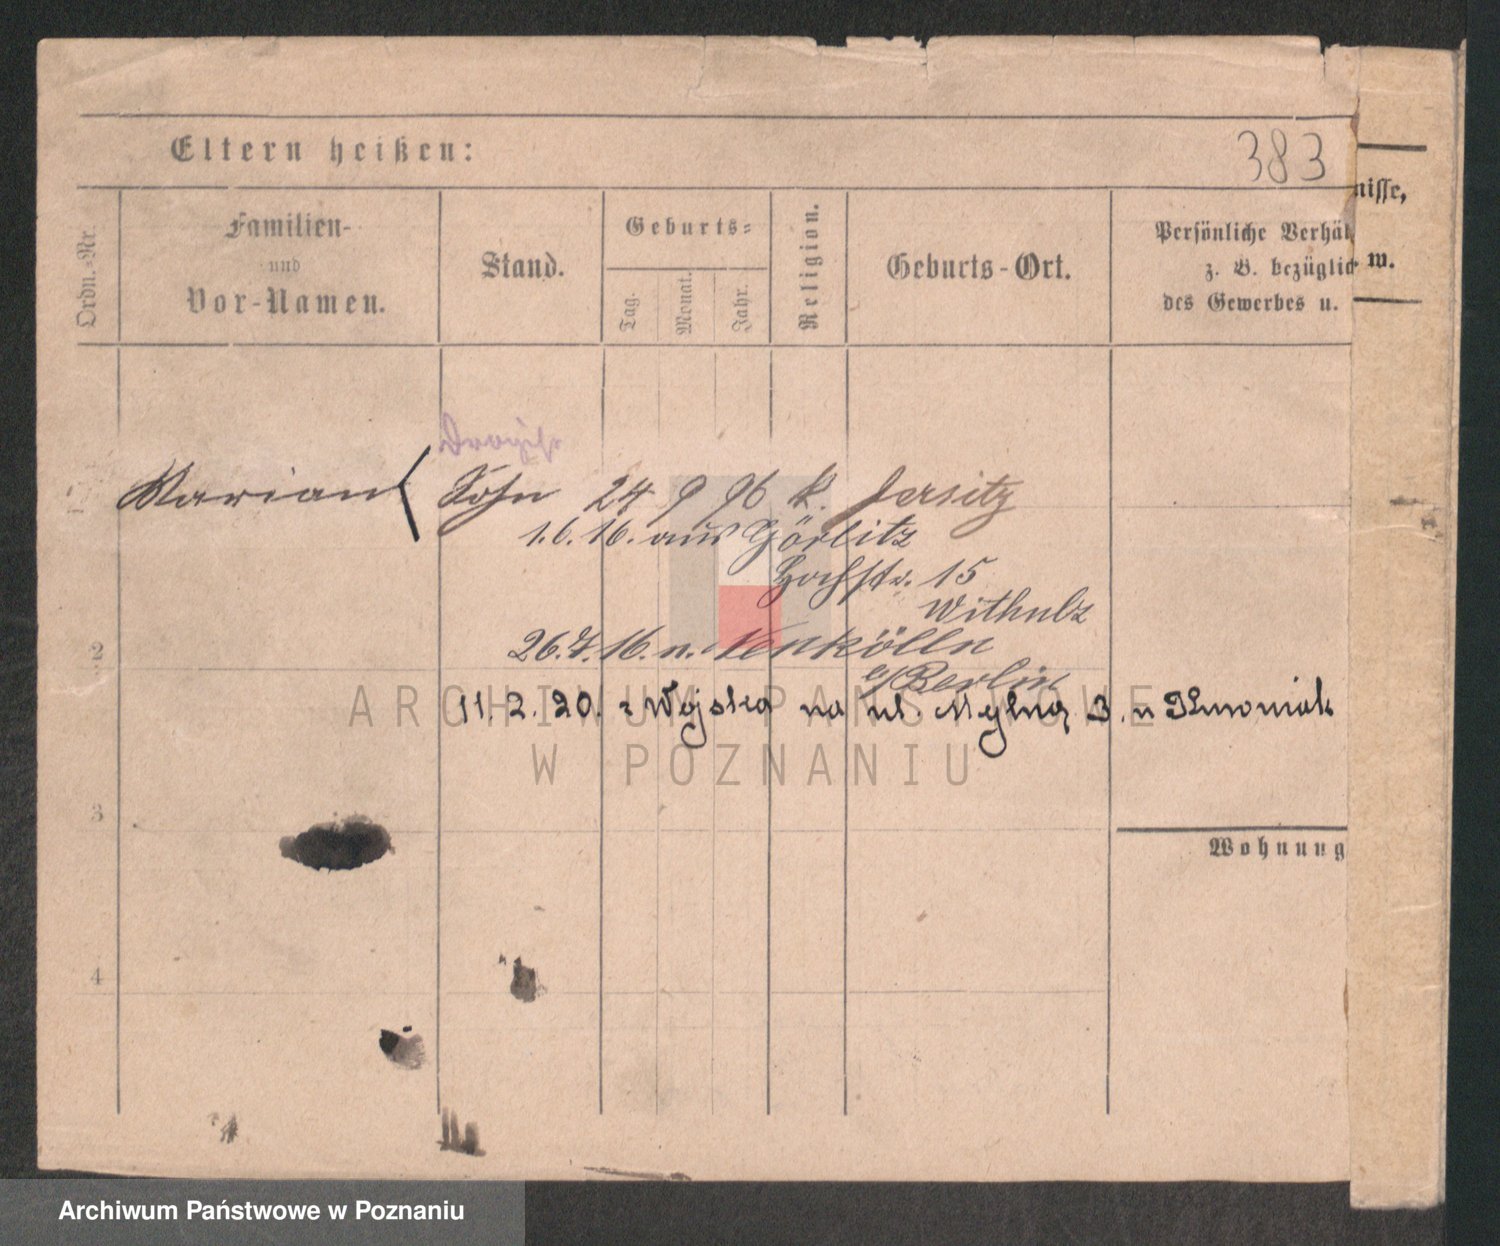 383
Eltern heißen:
Ordn.-Nr.
Familien-
und
Vor-Namen.
Stand.
Geburts-
Tag.
Monat.
Jahr.
Religion.
Geburts-Ort.
Persönliche Verhäl
z. B. bezüglich
des Gewerbes u.
nisse,
w.
Marian Sohn 24 9 96 k. Jersitz
1.6.16. aus Görlitz
Hochstr. 15
26.7.16. n. Neukölln
b/Berlin
2
11. 2. 20. z Wojska na ul. Mylną 3. u
ARCHIWUM PAŃSTWOWE
W POZNANIU
3
Wohnung
4
Archiwum Państwowe w Poznaniu